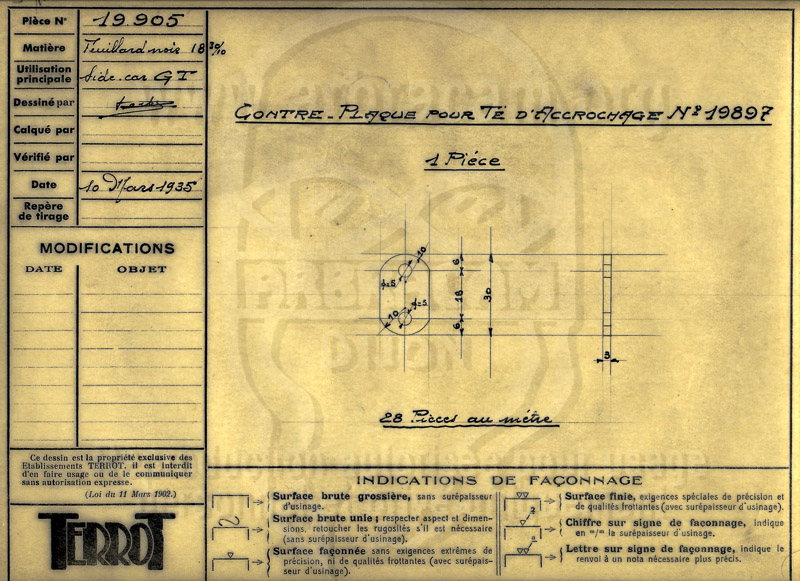 Pièce N° 19.905
Matière Feuillard noir 18 30/10
Utilisation principale Side-car GT
Dessiné par
Calqué par
Vérifié par
Date 10 Mars 1935
Repère de tirage
MODIFICATIONS
DATE OBJET
Ce dessin est la propriété exclusive des
Etablissements TERROT. il est interdit
d'en faire usage ou de le communiquer
sans autorisation expresse.
(Loi du 11 Mars 1902.)
TERROT
CONTRE-PLAQUE POUR TÉ D'ACCROCHAGE N° 19897
1 Piéce
10
6
5
18
30
5
10
6
3
28 Pièces au mètre
INDICATIONS DE FAÇONNAGE
Surface brute grossière, sans surépaisseur
d'usinage.
Surface brute unie ; respecter aspect et dimen-
sions, retoucher les rugosités s'il est nécessaire
(sans surépaisseur d'usinage).
Surface façonnée sans exigences extrêmes de
précision, ni de qualités frottantes (avec surépais-
seur d'usinage).
Surface finie, exigences spéciales de précision et
de qualités frottantes (avec surépaisseur d'usinage).
2
Chiffre sur signe de faconnage, indique
en m/m la surépaisseur d'usinage.
a
Lettre sur signe de façonnage, indique le
renvoi à un nota nécessaire plus précis.